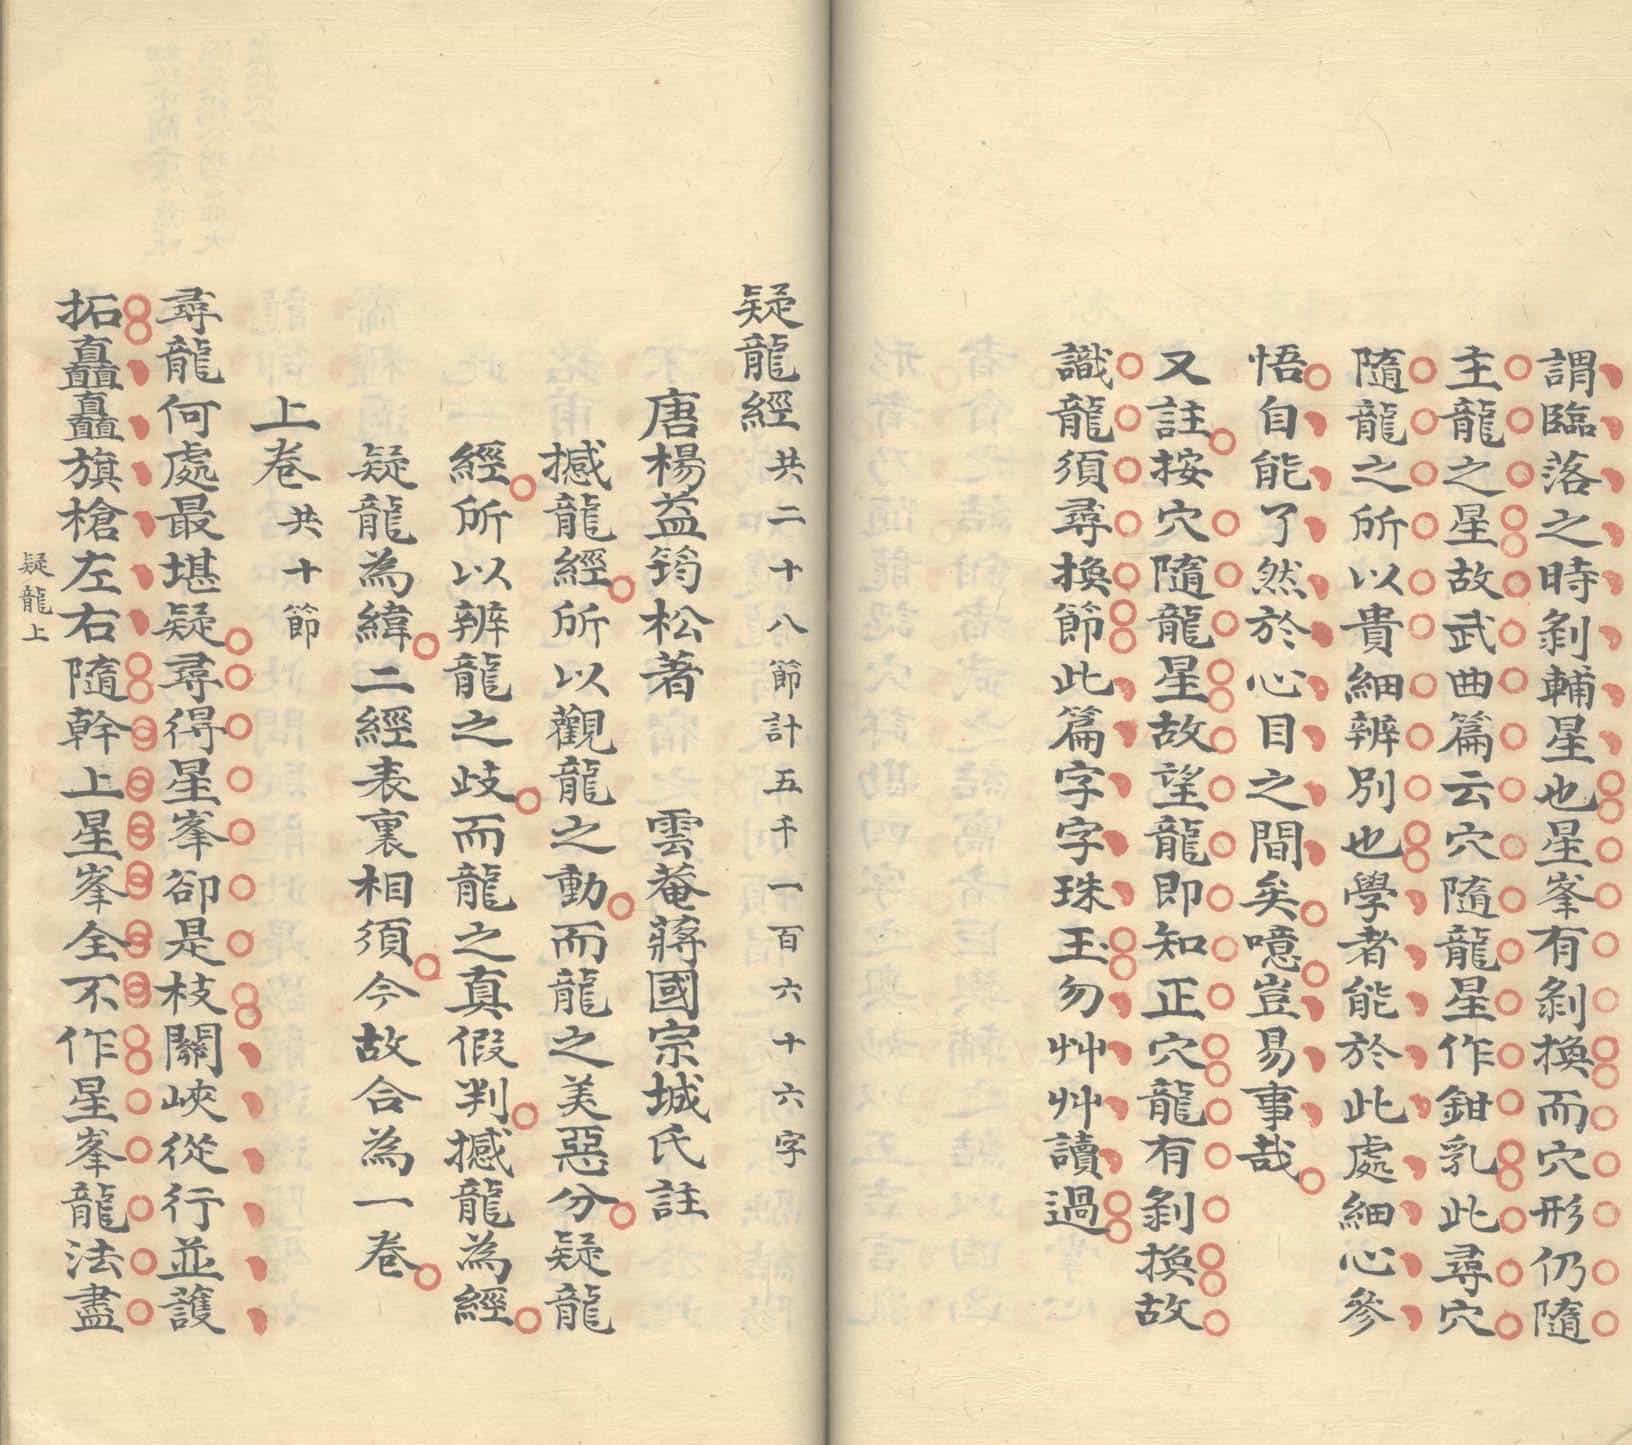 謂臨落之時剝輔星也星峯有剝換而穴形仍隨
主龍之星故武曲篇云穴隨龍星作鉗乳此尋穴
隨龍之所以貴細辨別也學者能於此處細心參
悟自能了然於心目之間矣噫豈易事哉
又註按穴隨龍星故望龍即知正穴龍有剝換故
識龍須尋換節此篇字字珠玉勿艸艸讀過
疑龍經共二十八節計五千一百六十六字
唐楊益筠松著 雲菴蔣國宗城氏註
撼龍經所以觀龍之動而龍之美惡分疑龍
經所以辨龍之歧而龍之真假判撼龍為經
疑龍為緯二經表裏相須今故合為一卷
上卷共十節
尋龍何處最堪疑尋得星峯卻是枝關峽從行並護
拓矗矗旗槍左右隨幹上星峯全不作星峯龍法盡
疑龍上